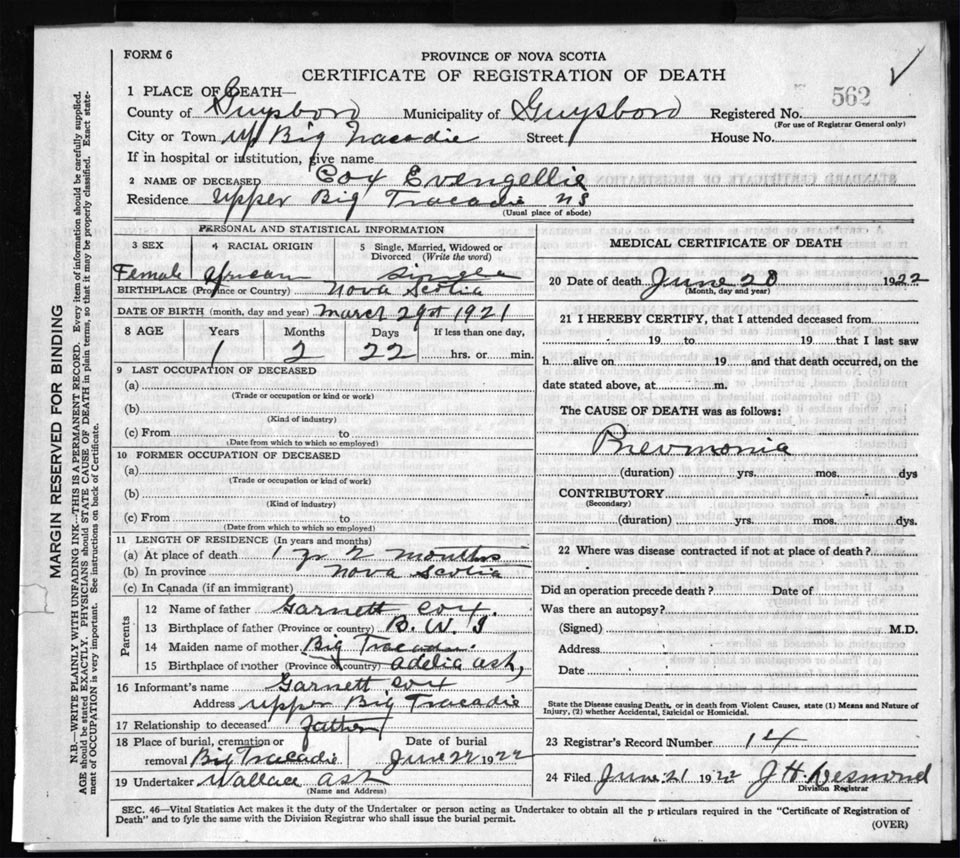 FORM 6
PROVINCE OF NOVA SCOTIA
CERTIFICATE OF REGISTRATION OF DEATH
1 PLACE OF DEATH—
County of Guysboro Municipality of Guysboro Registered No. 562
(For use of Registrar General only)
City or Town Up Big Tracadie Street House No.
If in hospital or institution, give name
2 NAME OF DECEASED Cox Evengellie
Residence Upper Big Tracadie NS
(Usual place of abode)
PERSONAL AND STATISTICAL INFORMATION
3 SEX 4 RACIAL ORIGIN 5 Single, Married, Widowed or Divorced (Write the word)
Female African Single
BIRTHPLACE (Province or Country) Nova Scotia
DATE OF BIRTH (month, day and year) March 29st 1921
8 AGE Years Months Days If less than one day,
1 2 22 hrs. or min.
9 LAST OCCUPATION OF DECEASED
(a)
(Trade or occupation or kind or work)
(b)
(Kind of industry)
(c) From to
(Date from which to which so employed)
10 FORMER OCCUPATION OF DECEASED
(a)
(Trade or occupation or kind of work)
(b)
(Kind of industry)
(c) From to
(Date from which to which so employed)
11 LENGTH OF RESIDENCE (In years and months)
(a) At place of death 1 yr 2 months
(b) In province Nova Scotia
(c) In Canada (if an immigrant)
Parents
12 Name of father Garnett Cox.
13 Birthplace of father (Province or country) B. W. I
14 Maiden name of mother Big Tracadie.
15 Birthplace of mother (Province or country) Adelia Ash,
16 Informant's name Garnett Cox
Address Upper Big Tracadie
17 Relationship to deceased father
18 Place of burial, cremation or removal Big Tracadie Date of burial June 22 1922
19 Undertaker Wallace Ash
(Name and Address)
MEDICAL CERTIFICATE OF DEATH
20 Date of death June 20 1922
(Month, day and year)
21 I HEREBY CERTIFY, that I attended deceased from
19 to 19 that I last saw
h alive on 19 and that death occurred, on the
date stated above, at m.
The CAUSE OF DEATH was as follows:
Pnevmonia
(duration) yrs. mos. dys
CONTRIBUTORY
(Secondary)
(duration) yrs. mos. dys.
22 Where was disease contracted if not at place of death?
Did an operation precede death? Date of
Was there an autopsy?
(Signed) M.D.
Address
Date
State the Disease causing Death, or in death from Violent Causes, state (1) Means and Nature of
Injury, (2) whether Accidental, Suicidal or Homicidal.
23 Registrar's Record Number 14
24 Filed June 21 1922 J H Desmond
Division Registrar
SEC. 46—Vital Statistics Act makes it the duty of the Undertaker or person acting as Undertaker to obtain all the particulars required in the "Certificate of Registration of
Death" and to fyle the same with the Division Registrar who shall issue the burial permit.
(OVER)
MARGIN RESERVED FOR BINDING
N.B.—WRITE PLAINLY WITH UNFADING INK—THIS IS A PERMANENT RECORD. Every item of information should be carefully supplied.
AGE should be stated EXACTLY. PHYSICIANS should STATE CAUSE OF DEATH in plain terms, so that it may be properly classified. Exact state-
ment of OCCUPATION is very important. See instructions on back of Certificate.